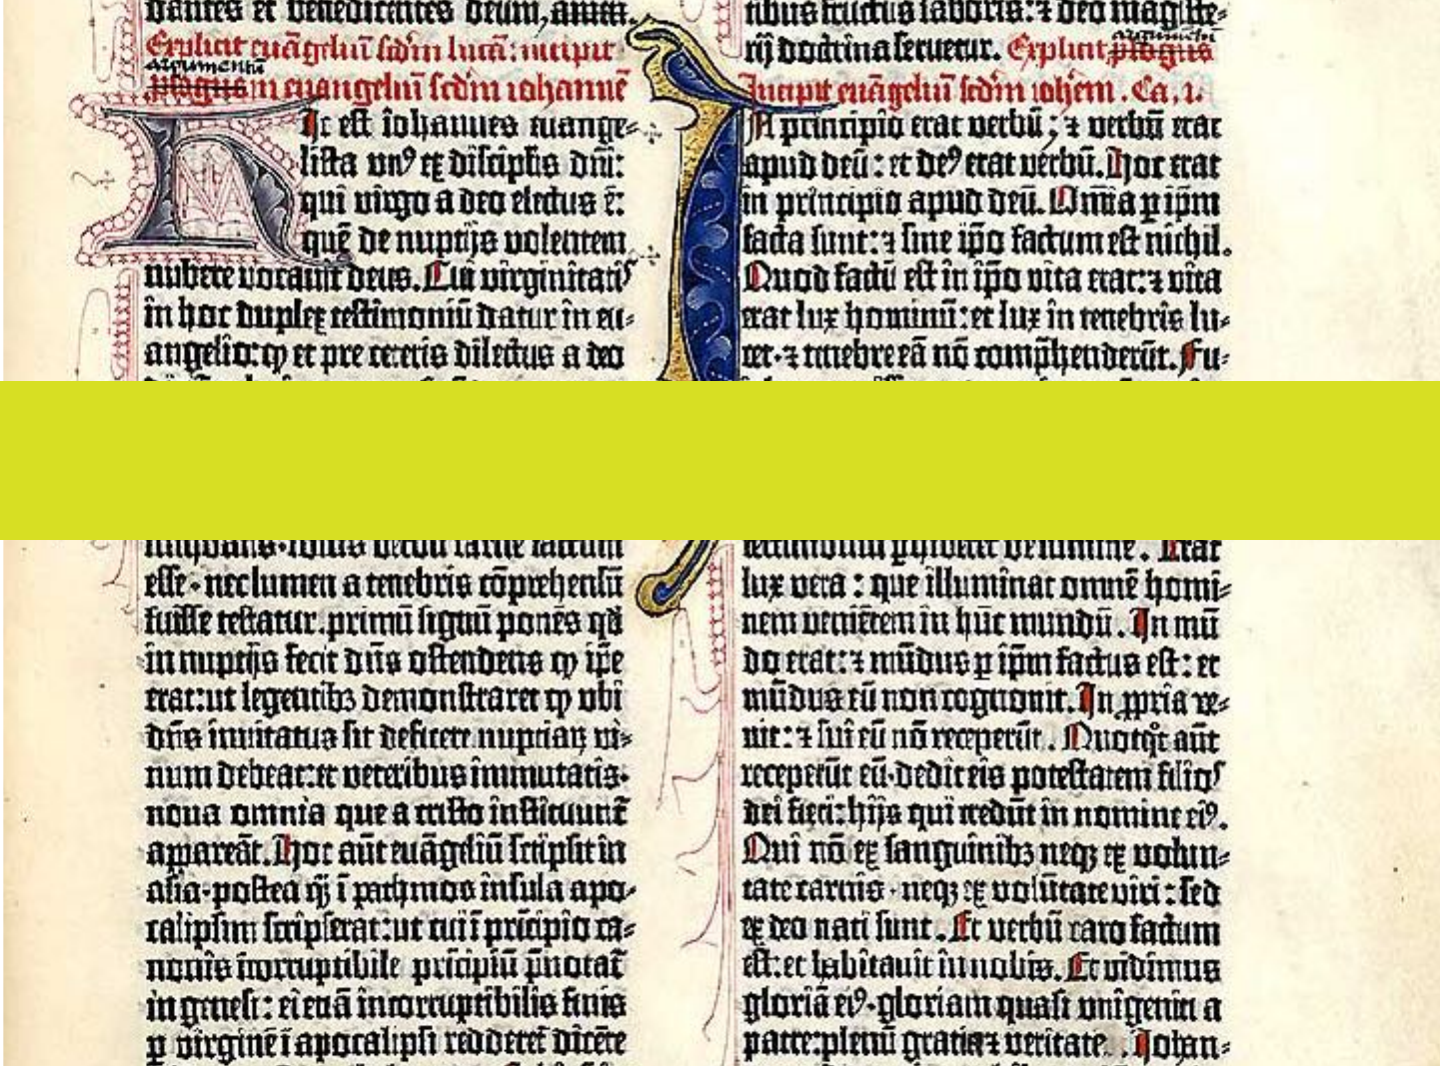 dantes et benedicentes deum, amen.
Explicit euāgeliū scd'm lucā: incipit
argumentū
plogus in euangeliū scd'm iohannē
Hic est iohannes euange-
lista unꝰ ex discipl'is dn̄i:
qui virgo a deo electus ē:
quē de nuptijs volentem
nubere vocavit deus. Cui virginitatis
in hoc duplex testimoniū datur in eu-
angelio: ꝙ et pre ceteris dilectus a deo
esse· nec lumen a tenebris cōprehensū
fuisse testatur. primū signū ponēs qd̄
in nuptijs fecit dn̄s ostendens ꝙ ip̄e
erat: ut legentibꝫ demonstraret ꝙ ubi
dn̄s invitatus sit deficere nuptiaꝝ vi-
num debeat: et veteribus immutatis·
nova omnia que a cristo instituunt̄
appareāt. Hoc aūt euāgeliū scripsit in
asia· postea qȝ ī pathmos insula apo-
calipsim scripserat: ut cui ī prīcipio ca-
nonis īcorruptibile prīcipiū p̄notat̄
in genesi: ei etiā incorruptibilis finis
ꝑ virginē ī apocalipsi redderet̄ dicēte
tibus fructus laboris: ⁊ deo magiste-
rij doctrina servetur. Explicit plogus
argumentū
Incipit euāgeliū scd'm ioh'em. Ca. ı.
In principio erat verbū: ⁊ verbū erat
apud deū: et deꝰ erat verbū. Hoc erat
in principio apud deū. Omīa ꝑ ip̄m
facta sunt: ⁊ sine ip̄o factum est nichil.
Quod factū est in ip̄o vita erat: ⁊ vita
erat lux hominū: et lux in tenebris lu-
cet· ⁊ tenebre eā nō comp̄henderūt. Fu-
testimoniū ꝑhiberet de lumine. Erat
lux vera: que illuminat omnē homi-
nem veniētem in hūc mundū. In mū
do erat: ⁊ mūdus ꝑ ip̄m factus est: et
mūdus eū non cognovit. In ꝓpria ve-
nit: ⁊ sui eū nō receperūt. Quotqͦt aūt
receperūt eū· dedit eis potestatem filios
dei fieri: hijs qui credūt in nomine eiꝰ.
Qui nō ex sanguinibꝫ neqꝫ ex volun-
tate carnis· neqꝫ ex volūtate viri: sed
ex deo nati sunt. Et verbū caro factum
est: et habitavit in nobis. Et vidimus
gloriā eiꝰ· gloriam quasi unigeniti a
patre: plenū gratie ⁊ veritate. Johan-